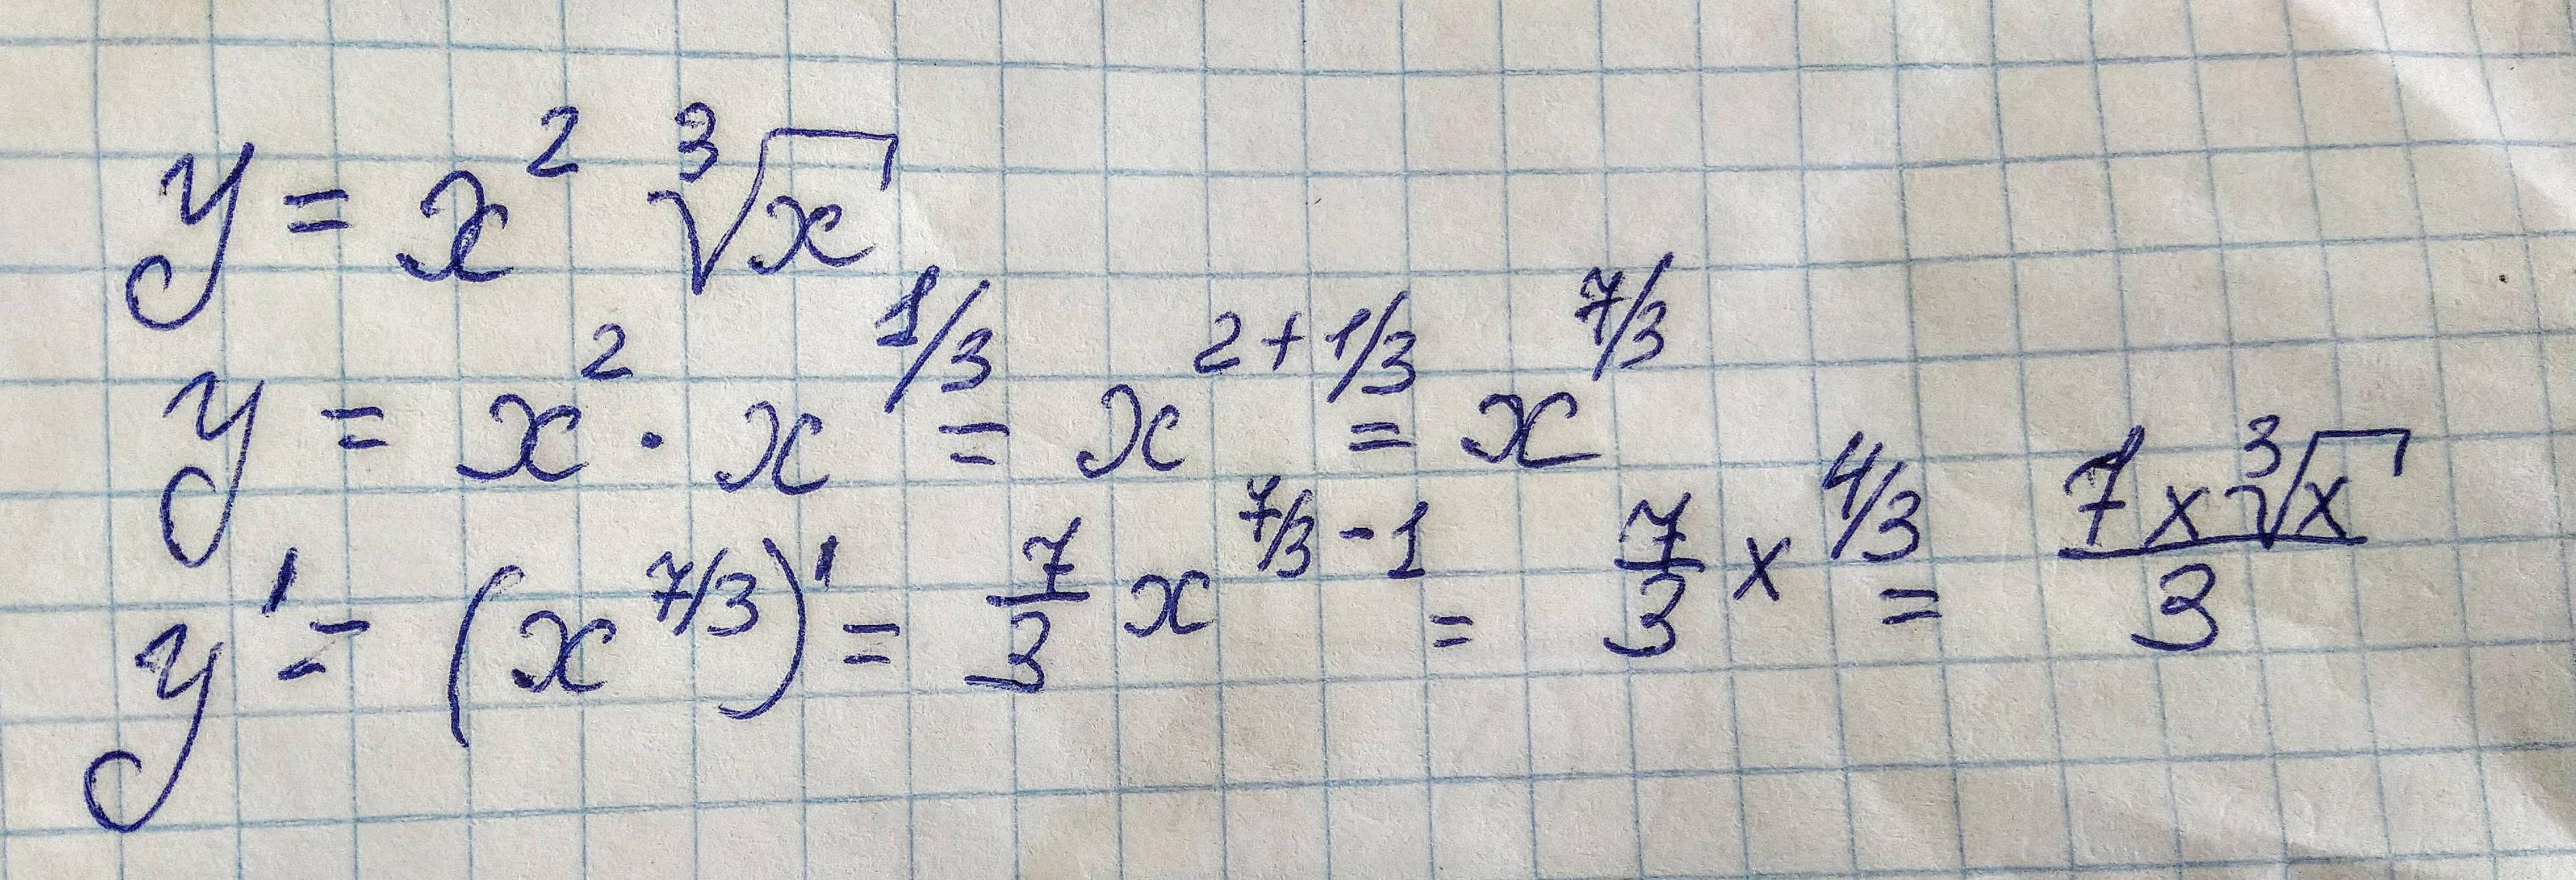 y = x² ∛x
y = x² · x^1/3 = x^2+1/3 = x^7/3
y' = (x^7/3)' = 7/3 x^7/3-1 = 7/3 x^4/3 = 7x∛x/3